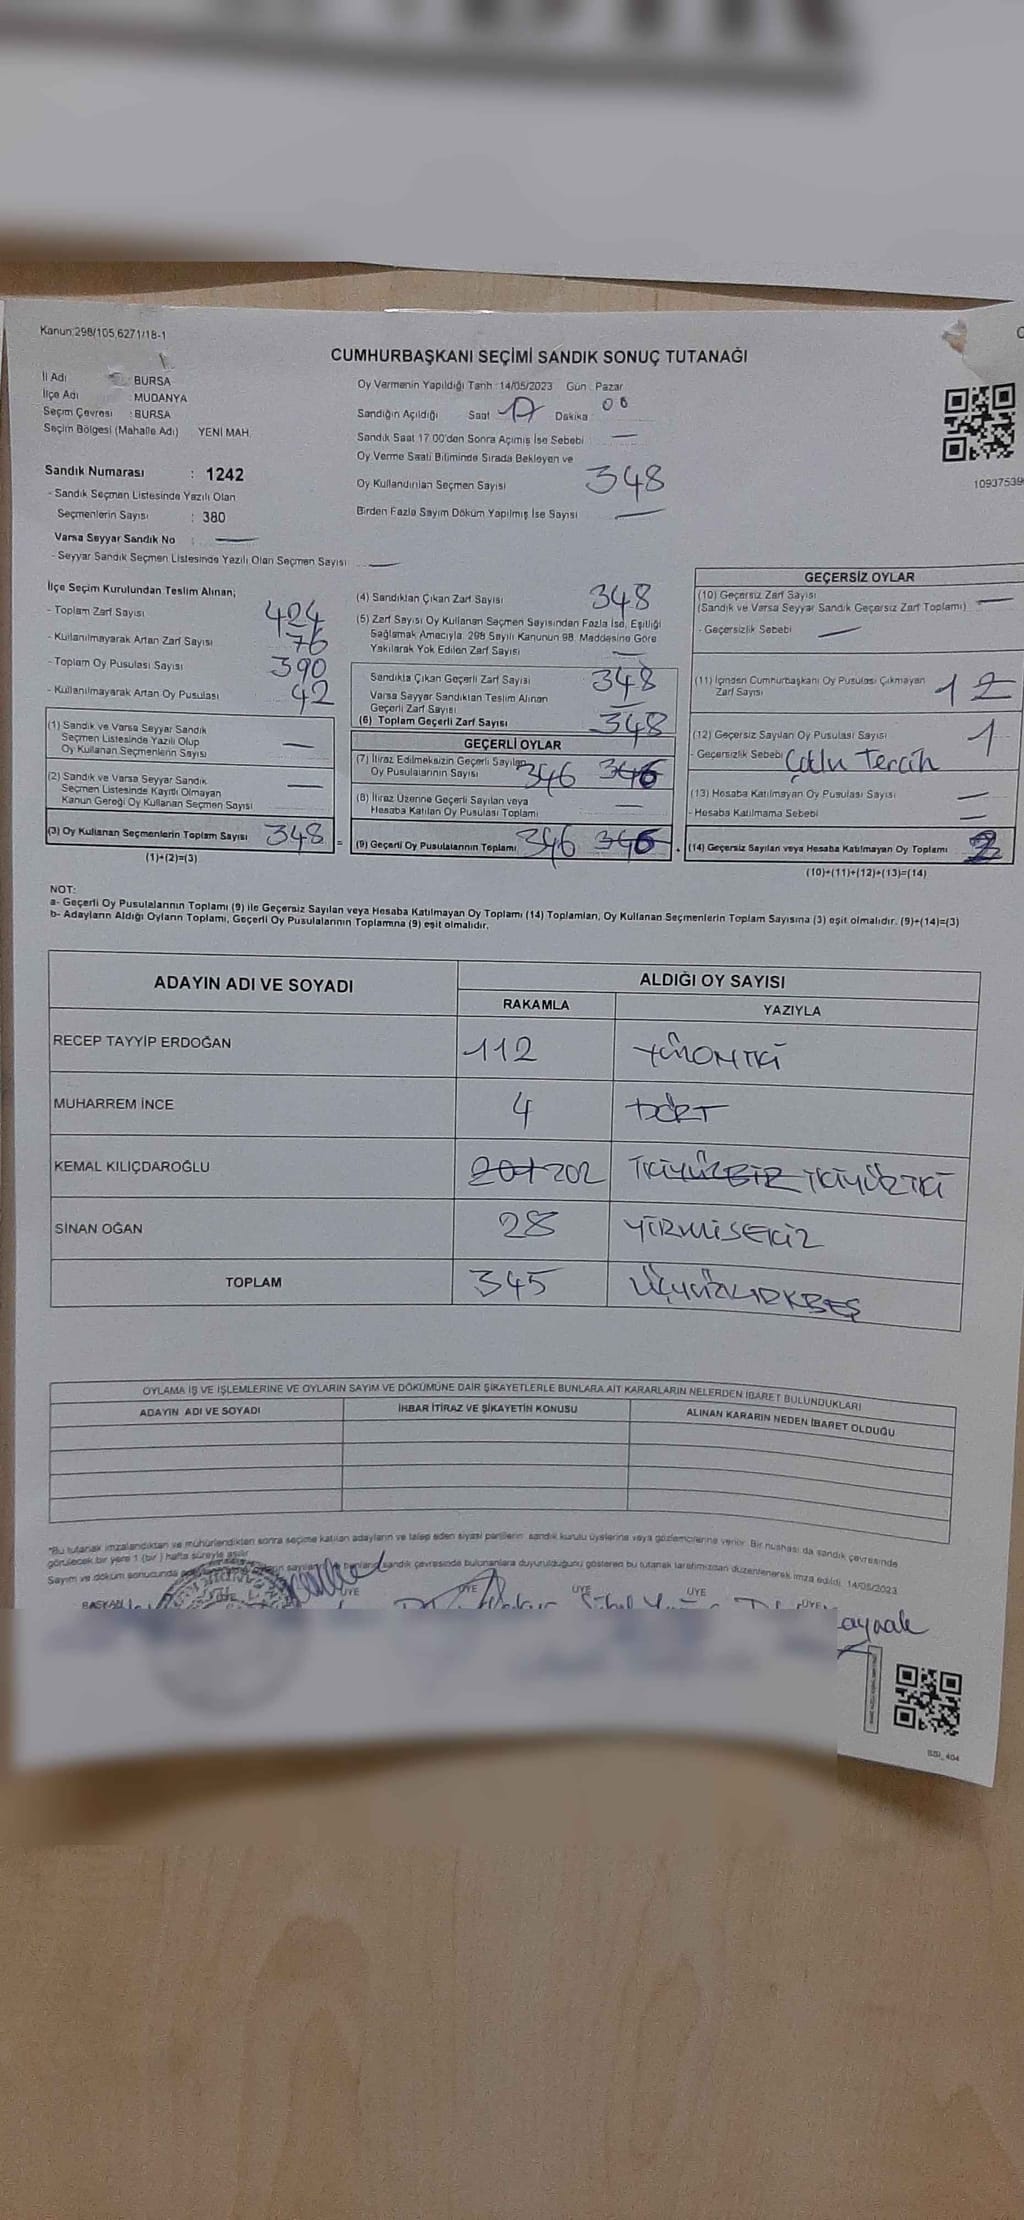 Kanun:298/105,6271/18-1
CUMHURBAŞKANI SEÇİMİ SANDIK SONUÇ TUTANAĞI
İl Adı : BURSA
İlçe Adı : MUDANYA
Seçim Çevresi : BURSA
Seçim Bölgesi (Mahalle Adı) YENİ MAH.
Sandık Numarası : 1242
- Sandık Seçmen Listesinde Yazılı Olan
Seçmenlerin Sayısı : 380
Varsa Seyyar Sandık No : —
- Seyyar Sandık Seçmen Listesinde Yazılı Olan Seçmen Sayısı —
Oy Vermenin Yapıldığı Tarih :14/05/2023 Gün : Pazar
Sandığın Açıldığı Saat 17 Dakika 00
Sandık Saat 17.00'den Sonra Açımış İse Sebebi —
Oy Verme Saati Bitiminde Sırada Bekleyen ve
Oy Kullandırılan Seçmen Sayısı 348
Birden Fazla Sayım Döküm Yapılmış İse Sayısı —
10937539
İlçe Seçim Kurulundan Teslim Alınan;
- Toplam Zarf Sayısı 424
- Kullanılmayarak Artan Zarf Sayısı 76
- Toplam Oy Pusulası Sayısı 390
- Kullanılmayarak Artan Oy Pusulası 42
(1) Sandık ve Varsa Seyyar Sandık
Seçmen Listesinde Yazılı Olup
Oy Kullanan Seçmenlerin Sayısı —
(2) Sandık ve Varsa Seyyar Sandık
Seçmen Listesinde Kayıtlı Olmayan
Kanun Gereği Oy Kullanan Seçmen Sayısı —
(3) Oy Kullanan Seçmenlerin Toplam Sayısı 348 =
(1)+(2)=(3)
(4) Sandıktan Çıkan Zarf Sayısı 348
(5) Zarf Sayısı Oy Kullanan Seçmen Sayısından Fazla İse, Eşitliği
Sağlamak Amacıyla 298 Sayılı Kanunun 98. Maddesine Göre
Yakılarak Yok Edilen Zarf Sayısı —
Sandıkta Çıkan Geçerli Zarf Sayısı 348
Varsa Seyyar Sandıktan Teslim Alınan
Geçerli Zarf Sayısı —
(6) Toplam Geçerli Zarf Sayısı 348
GEÇERLİ OYLAR
(7) İtiraz Edilmeksizin Geçerli Sayılan
Oy Pusulalarının Sayısı 346 346
(8) İtiraz Üzerine Geçerli Sayılan veya
Hesaba Katılan Oy Pusulası Toplamı —
(9) Geçerli Oy Pusulalarının Toplamı 346 346
GEÇERSİZ OYLAR
(10) Geçersiz Zarf Sayısı
(Sandık ve Varsa Seyyar Sandık Geçersiz Zarf Toplamı) —
- Geçersizlik Sebebi —
(11) İçinden Cumhurbaşkanı Oy Pusulası Çıkmayan
Zarf Sayısı 1 2
(12) Geçersiz Sayılan Oy Pusulası Sayısı 1
- Geçersizlik Sebebi Çoklu Tercih
(13) Hesaba Katılmayan Oy Pusulası Sayısı —
- Hesaba Katılmama Sebebi —
(14) Geçersiz Sayılan veya Hesaba Katılmayan Oy Toplamı
(10)+(11)+(12)+(13)=(14)
NOT:
a- Geçerli Oy Pusulalarının Toplamı (9) ile Geçersiz Sayılan veya Hesaba Katılmayan Oy Toplamı (14) Toplamları, Oy Kullanan Seçmenlerin Toplam Sayısına (3) eşit olmalıdır. (9)+(14)=(3)
b- Adayların Aldığı Oyların Toplamı, Geçerli Oy Pusulalarının Toplamına (9) eşit olmalıdır.
ADAYIN ADI VE SOYADI ALDIĞI OY SAYISI
RAKAMLA YAZIYLA
RECEP TAYYİP ERDOĞAN 112 YÜZONİKİ
MUHARREM İNCE 4 DÖRT
KEMAL KILIÇDAROĞLU 201 202 İKİYÜZBİR İKİYÜZİKİ
SİNAN OĞAN 28 YİRMİSEKİZ
TOPLAM 345 ÜÇYÜZKIRKBEŞ
OYLAMA İŞ VE İŞLEMLERİNE VE OYLARIN SAYIM VE DÖKÜMÜNE DAİR ŞİKAYETLERLE BUNLARA AİT KARARLARIN NELERDEN İBARET BULUNDUKLARI
ADAYIN ADI VE SOYADI İHBAR İTİRAZ VE ŞİKAYETİN KONUSU ALINAN KARARIN NEDEN İBARET OLDUĞU
*Bu tutanak imzalandıktan ve mühürlendikten sonra seçime katılan adayların ve talep eden siyasi partilerin sandık kurulu üyelerine veya gözlemcilerine verilir. Bir nüshası da sandık çevresinde
görülecek bir yere 1 (bir) hafta süreyle asılır.
Sayım ve döküm sonucunda sandık çevresinde bulunanlara duyurulduğunu gösteren bu tutanak tarafımızdan düzenlenerek imza edildi. 14/05/2023
BAŞKAN ÜYE ÜYE ÜYE ÜYE ÜYE ÜYE